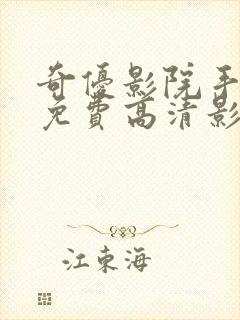 奇優影院手
免費高清影
江東海